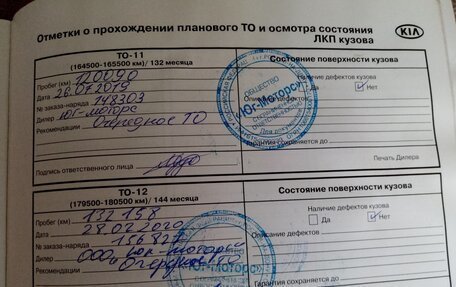 Отметки о прохождении планового ТО и осмотра состояния
ЛКП кузова
KIA
ТО-11
(164500-165500 км)/ 132 месяца
Пробег (км) 120090
Дата 26.07.2019
№ заказа-наряда 148303
Дилер Юг-моторс
Рекомендации Очередное ТО
Подпись ответственного лица
Состояние поверхности кузова
Наличие дефектов кузова
Да Нет
Описание дефектов
Гарантия сохраняется до
Печать Дилера
ОБЩЕСТВО
«Юг-Моторс»
Для документов
ТО-12
(179500-180500 км)/ 144 месяца
Пробег (км) 132 158
Дата 28.07.2020
№ заказа-наряда 156827
Дилер ООО
Рекомендации Очередное ТО
Состояние поверхности кузова
Наличие дефектов кузова
Да Нет
Описание дефектов
Гарантия сохраняется до
«Юг-Моторс»